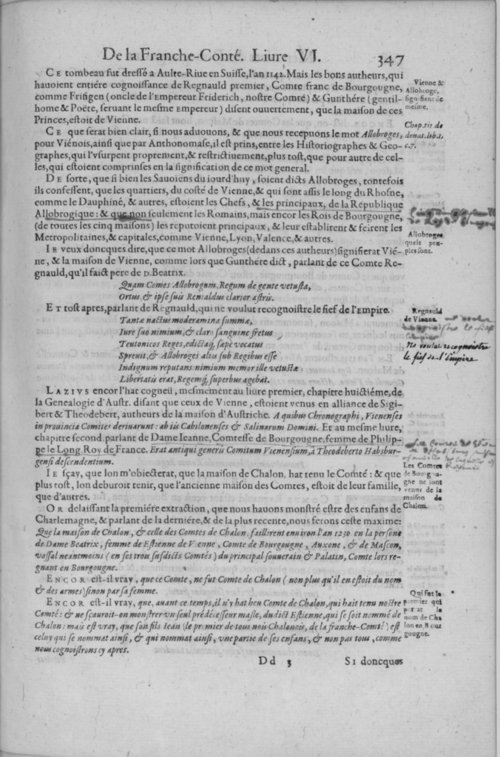 De la Franche-Conté. Liure VI. 347
CE tombeau fut dressé a Aulte-Riue en Suisse, l'an 1142. Mais les bons autheurs, qui
hauoient entiére cognoissance de Regnauld premier, Comte franc de Bourgougne,
comme Frisigen (oncle de l'Empereur Friderich, nostre Comté) & Gunthére (gentil-
home & Poëte, seruant le mesme Empereur) disent ouuertement, que la maison de ces
Princes, estoit de Vienne.
Vienne &
Allobroge,
signifient de
mesme.
CE que serat bien clair, si nous aduouons, & que nous receuons le mot Allobroges,
pour Viénois, ainsi que par Anthonomase, il est prins, entre les Historiographes & Geo-
graphes, qui l'vsurpent proprement, & restrictiuement, plus tost, que pour autre de cel-
les, qui estoient comprinses en la signification de ce mot general.
DE sorte, que si bien les Sauoiens du iourd'huy, soient dicts Allobroges, toutefois
ils confessent, que les quartiers, du costé de Vienne, & qui sont assis le long du Rhosne,
comme le Dauphiné, & autres, estoient les Chefs, & les principaux, de la Republique
Allobrogique: & que non seulement les Romains, mais encor les Rois de Bourgougne,
(de toutes les cinq maisons) les reputoient principaux, & leur establirent & feirent les
Metropolitaines, & capitales, comme Vienne, Lyon, Valence, & autres.
Allobroges
quels peu-
ples sont.
IE veux doncques dire, que ce mot Allobroges (dedans ces autheurs) signifierat Vié-
ne, & la maison de Vienne, comme lors que Gunthére dict, parlant de ce Comte Re-
gnauld, qu'il faict pere de D. Beatrix.
Quam Comes Allobrogum, Regum de gente vetusta,
Ortus & ipse suis Renaldus clarior astris.
ET tost apres, parlant de Regnauld, qui ne voulut recognoistre le fief de l'Empire.
Tantæ nactus moderamina summæ,
Iure suo nimium, & claro sanguine fretus
Teutonicos Reges, edictaq́, sæpè vocatus
Spreuit, & Allobroges alio sub Regibus esse
Indignum reputans nimium memor ille vetustæ
Libertatis erat, Regemq́, superbus agebat.
Regnauld
de Vienne.
ne voulut recognoistre
le fief de l'Empire
LAZIVS encor l'hat cogneu, mesmement au liure premier, chapitre huictiéme, de
la Genealogie d'Austr. disant que ceux de Vienne, estoient venus en alliance de Sigi-
bert & Theodebert, autheurs de la maison d'Austriche. A quibus Chronographi, Vienenses
in prouincia Comites deriuarunt: ab iis Cabilonenses & Salinarum Domini. Et au mesme liure,
chapitre second, parlant de Dame Ieanne, Comtesse de Bourgougne, femme de Philip-
pe le Long, Roy de France. Erat antiqui generis Comitum Vienensium, à Theodeberto Habsbur-
gensi descendentium.
IE sçay, que lon m'obiecterat, que la maison de Chalon, hat tenu le Comté: & que
plus tost, lon deburoit tenir, que l'ancienne maison des Comtes, estoit de leur famille,
que d'autres.
Les Comtes
de Bourgou-
gne ne sont
venus de la
maison de
Chalon.
OR delaissant la premiére extraction, que nous hauons monstré estre des enfans de
Charlemagne, & parlant de la derniére, & de la plus recente, nous ferons ceste maxime:
Que la maison de Chalon, & celle des Comtes de Chalon, faillirent enuiron l'an 1230 en la persone
de Dame Beatrix, femme de Estienne de Vienne, Comte de Bourgougne, Auxone, & de Mascon,
vassal neantmoins (en ses trois susdicts Comtés) du principal souuerain & Palatin, Comte lors re-
gnant en Bourgougne.
ENCOR est-il vray, que ce Comte, ne fut Comte de Chalon (non plus qu'il en estoit du nom
& des armes) sinon par sa femme.
ENCOR est-il vray, que, auant ce temps, il n'y hat heu Comte de Chalon, qui hait tenu nostre
Comté: & ne scauroit-on monstrer vn seul prédécesseur masle, dudict Estienne, qui se soit nommé de
Chalon: mais est vray, que son fils Iean (le premier de tous nos Chalonois, de la franche-Comté) est
celuy qui se nommat ainsi, & qui nommat ainsi, vne partie de ses enfans, & non pas tous, comme
nous cognoistrons cy apres.
Qui fut le
premier qui
prit le
nom de Cha
lon en Bour
gougne.
Dd 3 SI doncques